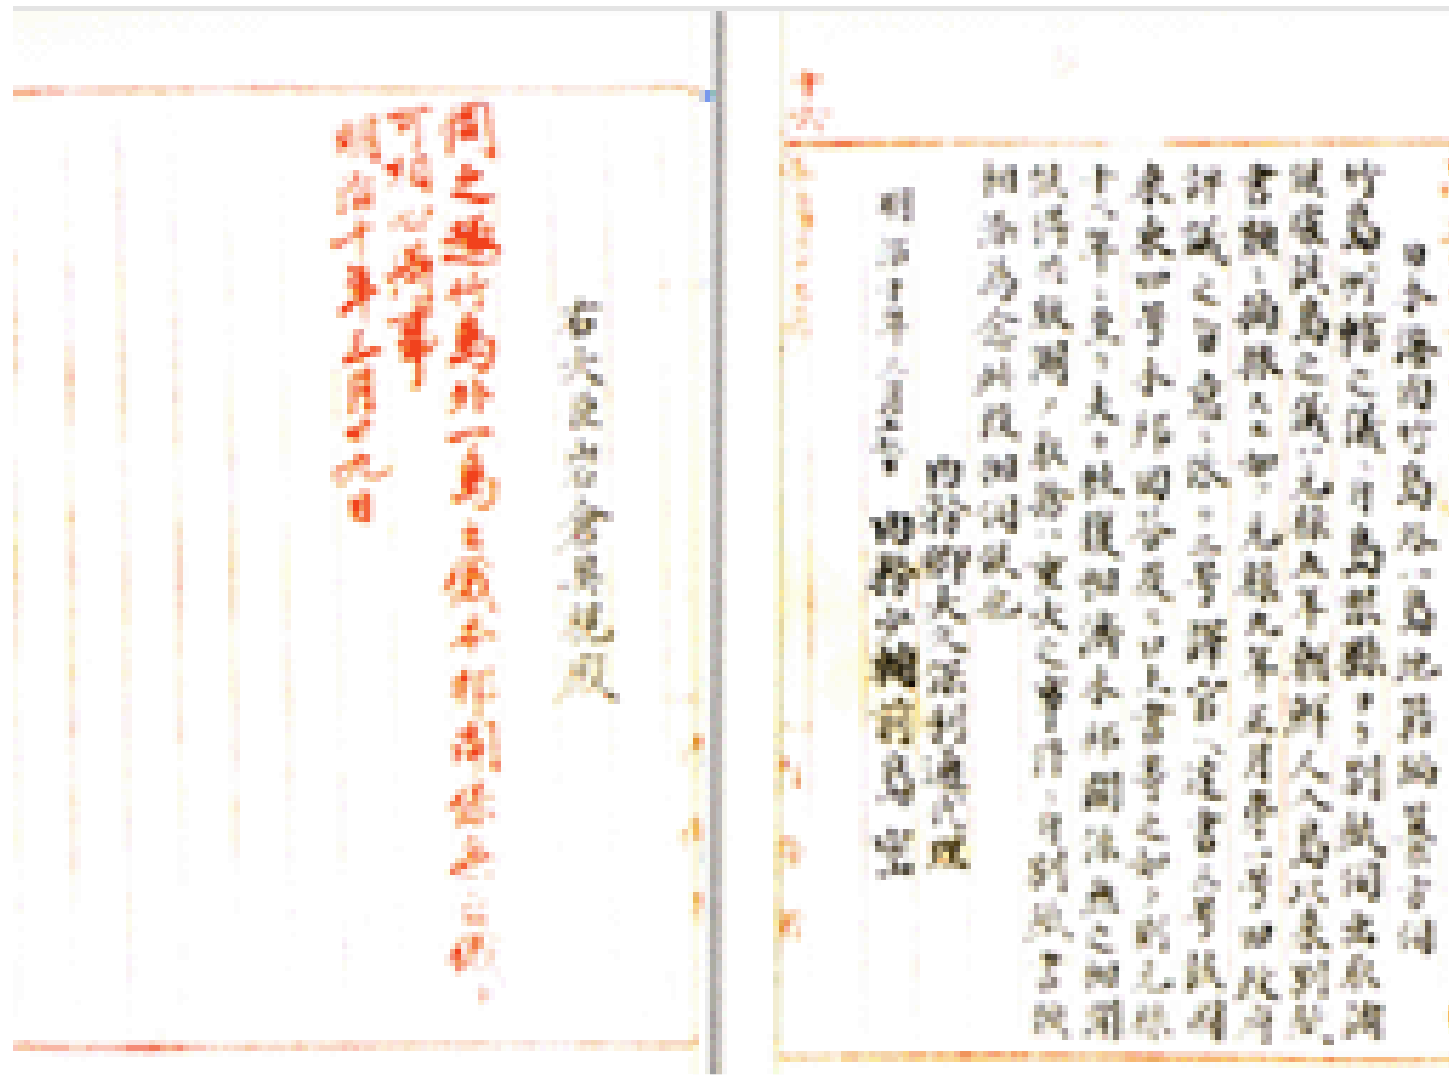 日本海内竹島外一島地籍編纂方伺
竹島所轄之儀ニ付島根県ヨリ別紙伺出取調
候処該島之儀ハ元禄五年朝鮮人入島以来別紙
書類ニ摘採スル如ク元禄九年正月第一号旧政府
評議之旨意ニ依リ二号訳官ヘ達書三号該国
来柬四号本邦回答及ヒ口上書等之如ク則元禄
十二年ニ至リ夫々往復相済本邦関係無之相聞
候得共版図ノ取捨ハ重大之事件ニ付別紙書類
相添為念此段相伺候也
内務卿大久保利通代理
明治十年三月十七日 内務少輔前島密
右大臣岩倉具視殿
伺之趣竹島外一島之儀本邦関係無之儀ト
可相心得事
明治十年三月廿九日